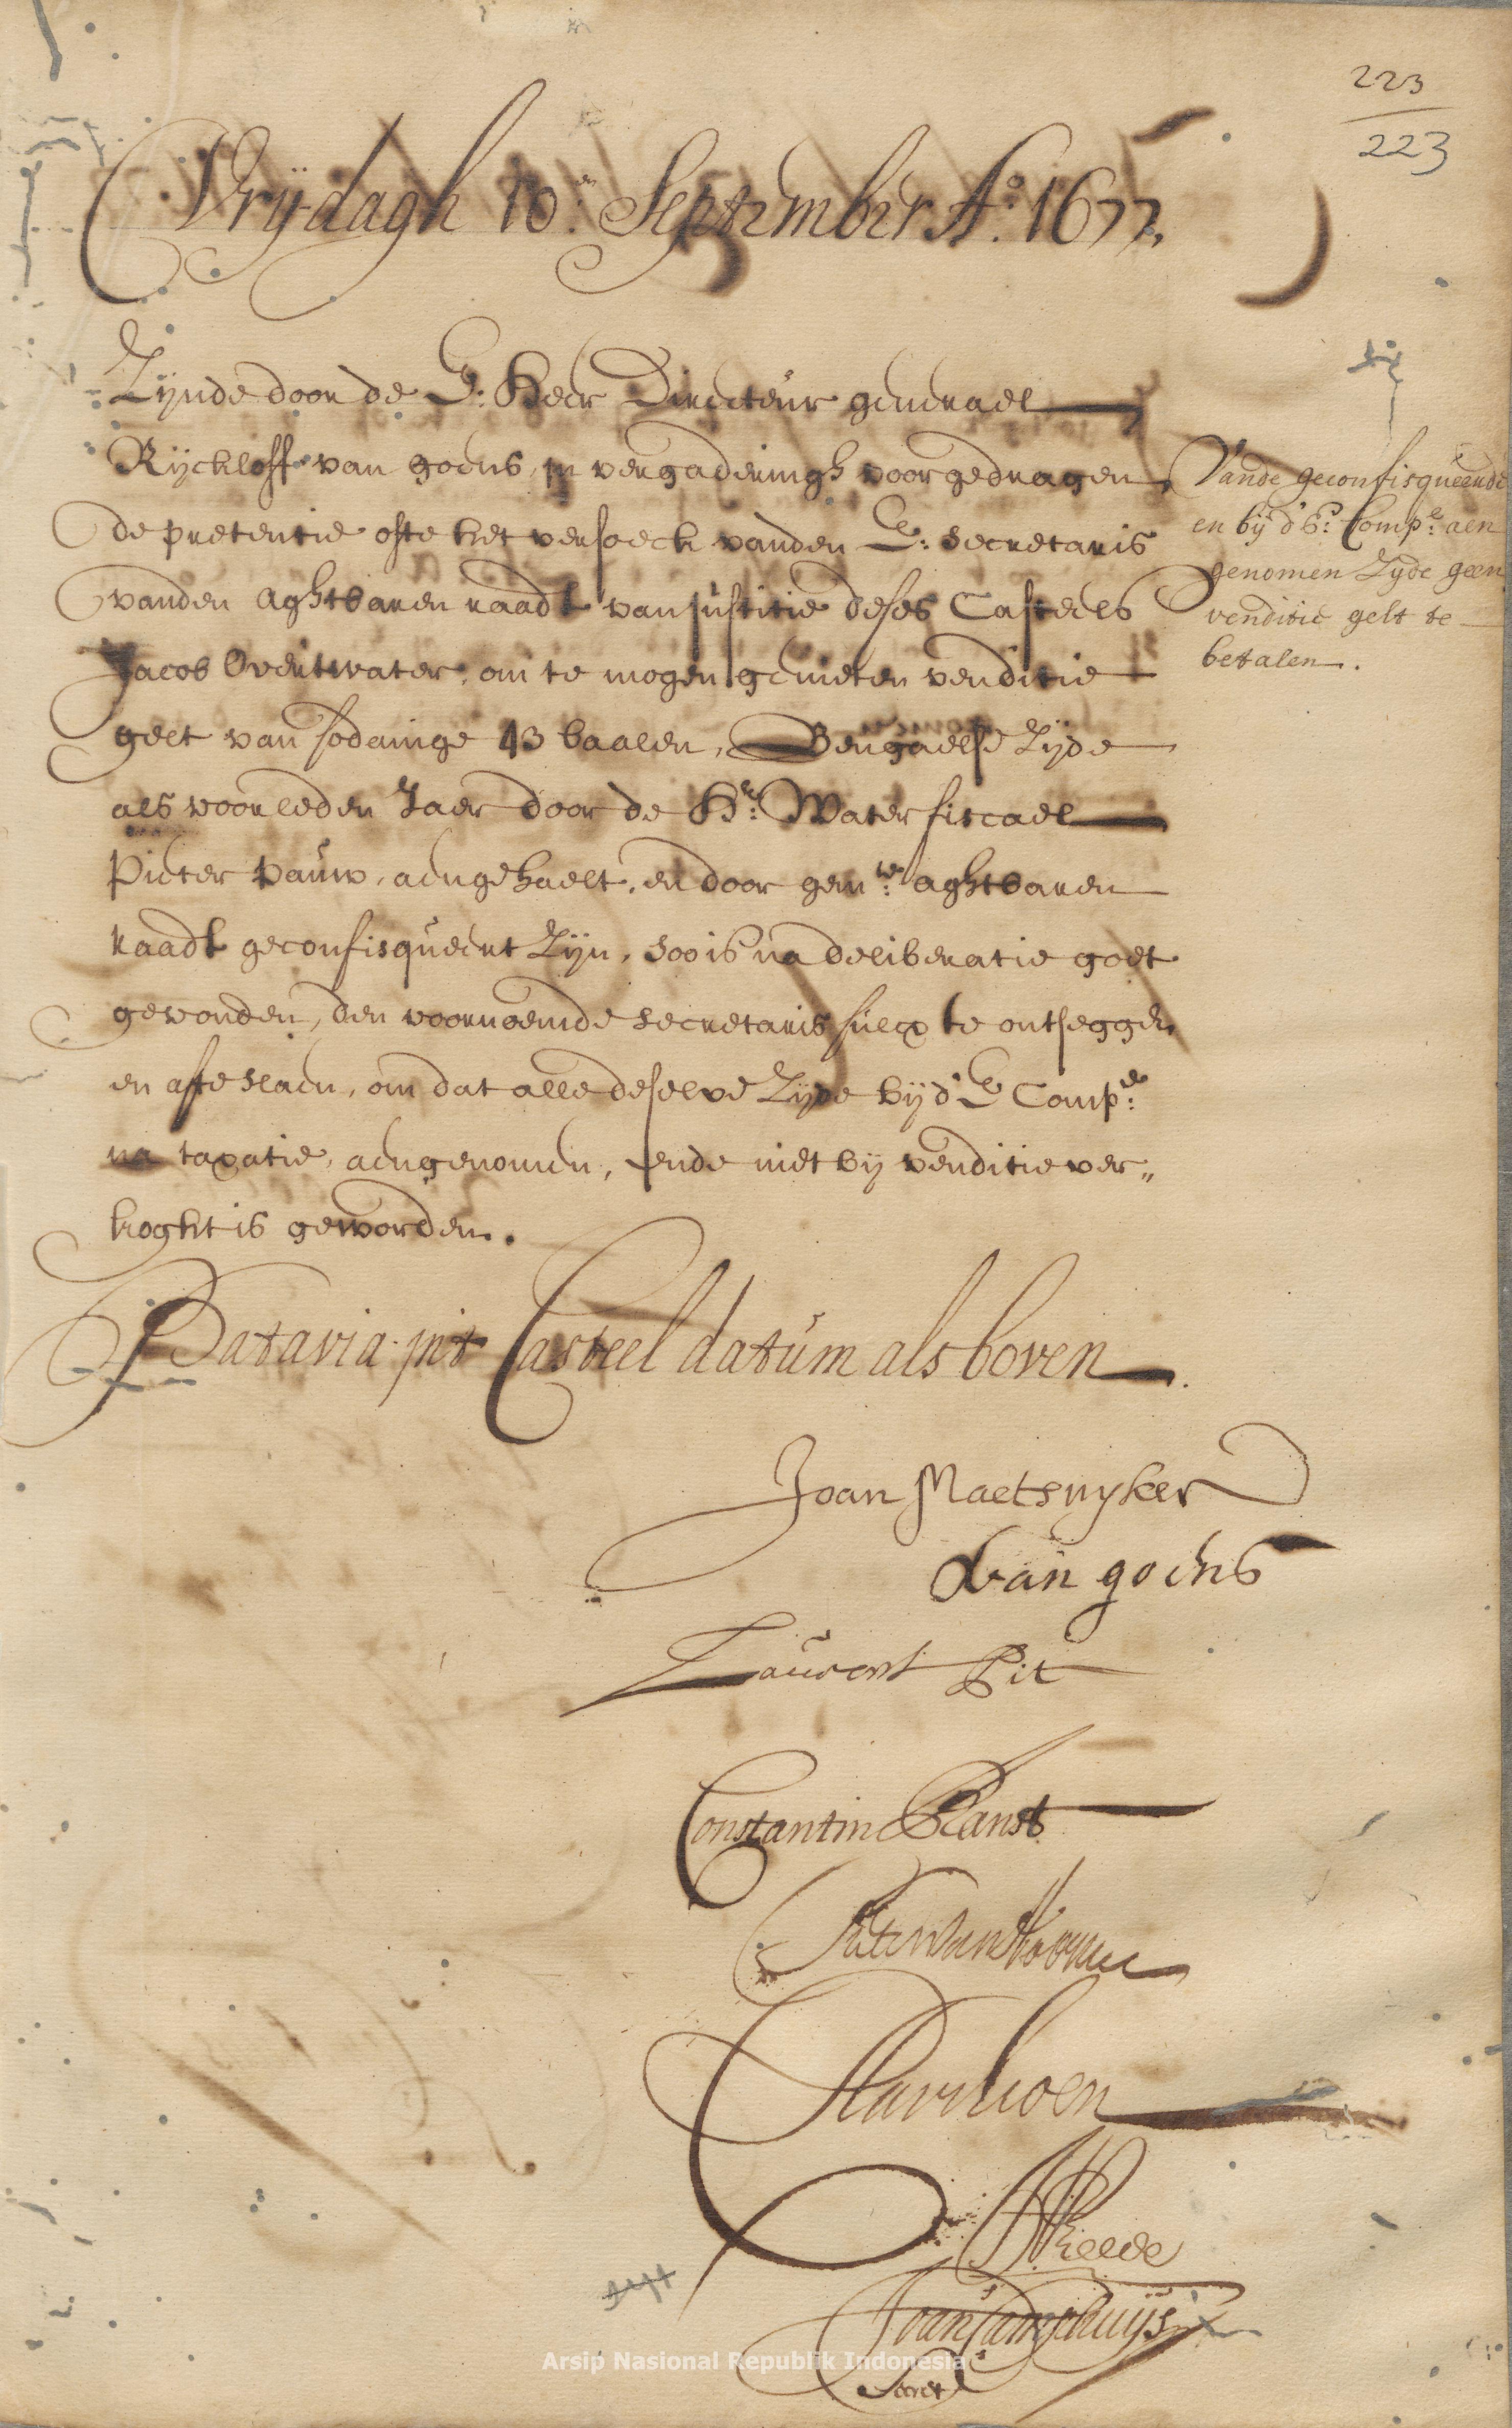 223
223
Vrijdagh 10en. September Ao. 1677.
Zijnde door de E: Heer Directeur generael
Rijckloff van goens, in vergaderingh voorgedragen
de pretentie ofte het versoeck vanden E: secretaris
vanden aghtbaren raadt van justitie deses Casteels
Jacob Overtwater, om te mogen genieten venditie
gelt van sodanige 43 baalen, Bengaelse Zijde
als voorleden Jaer door de Hr: Waterfiscael
Pieter Pauw, aengehaelt, en door gemte: aghtbaren
raadt geconfisqueert Zijn, soo is na deliberatie goet
gevonden, den voornoemde secretaris sulcx te ontseggen
en af te slaen, om dat alle deselve Zijde bij d' E Compe:
na taxatie, aengenomen, ende niet bij venditie ver„
koght is geworden.
Vande geconfisqueerde
en bij d' E: Compe: aen
genomen Zijde geen
venditie gelt te
betalen.
Batavia int Casteel datum als boven
Joan Maetsuyker
R van goens
Laurens Pit
Constantin Ranst
Pieter van Hoorn
WReede
Joannes Camphuijs
Secrets
Arsip Nasional Republik Indonesia